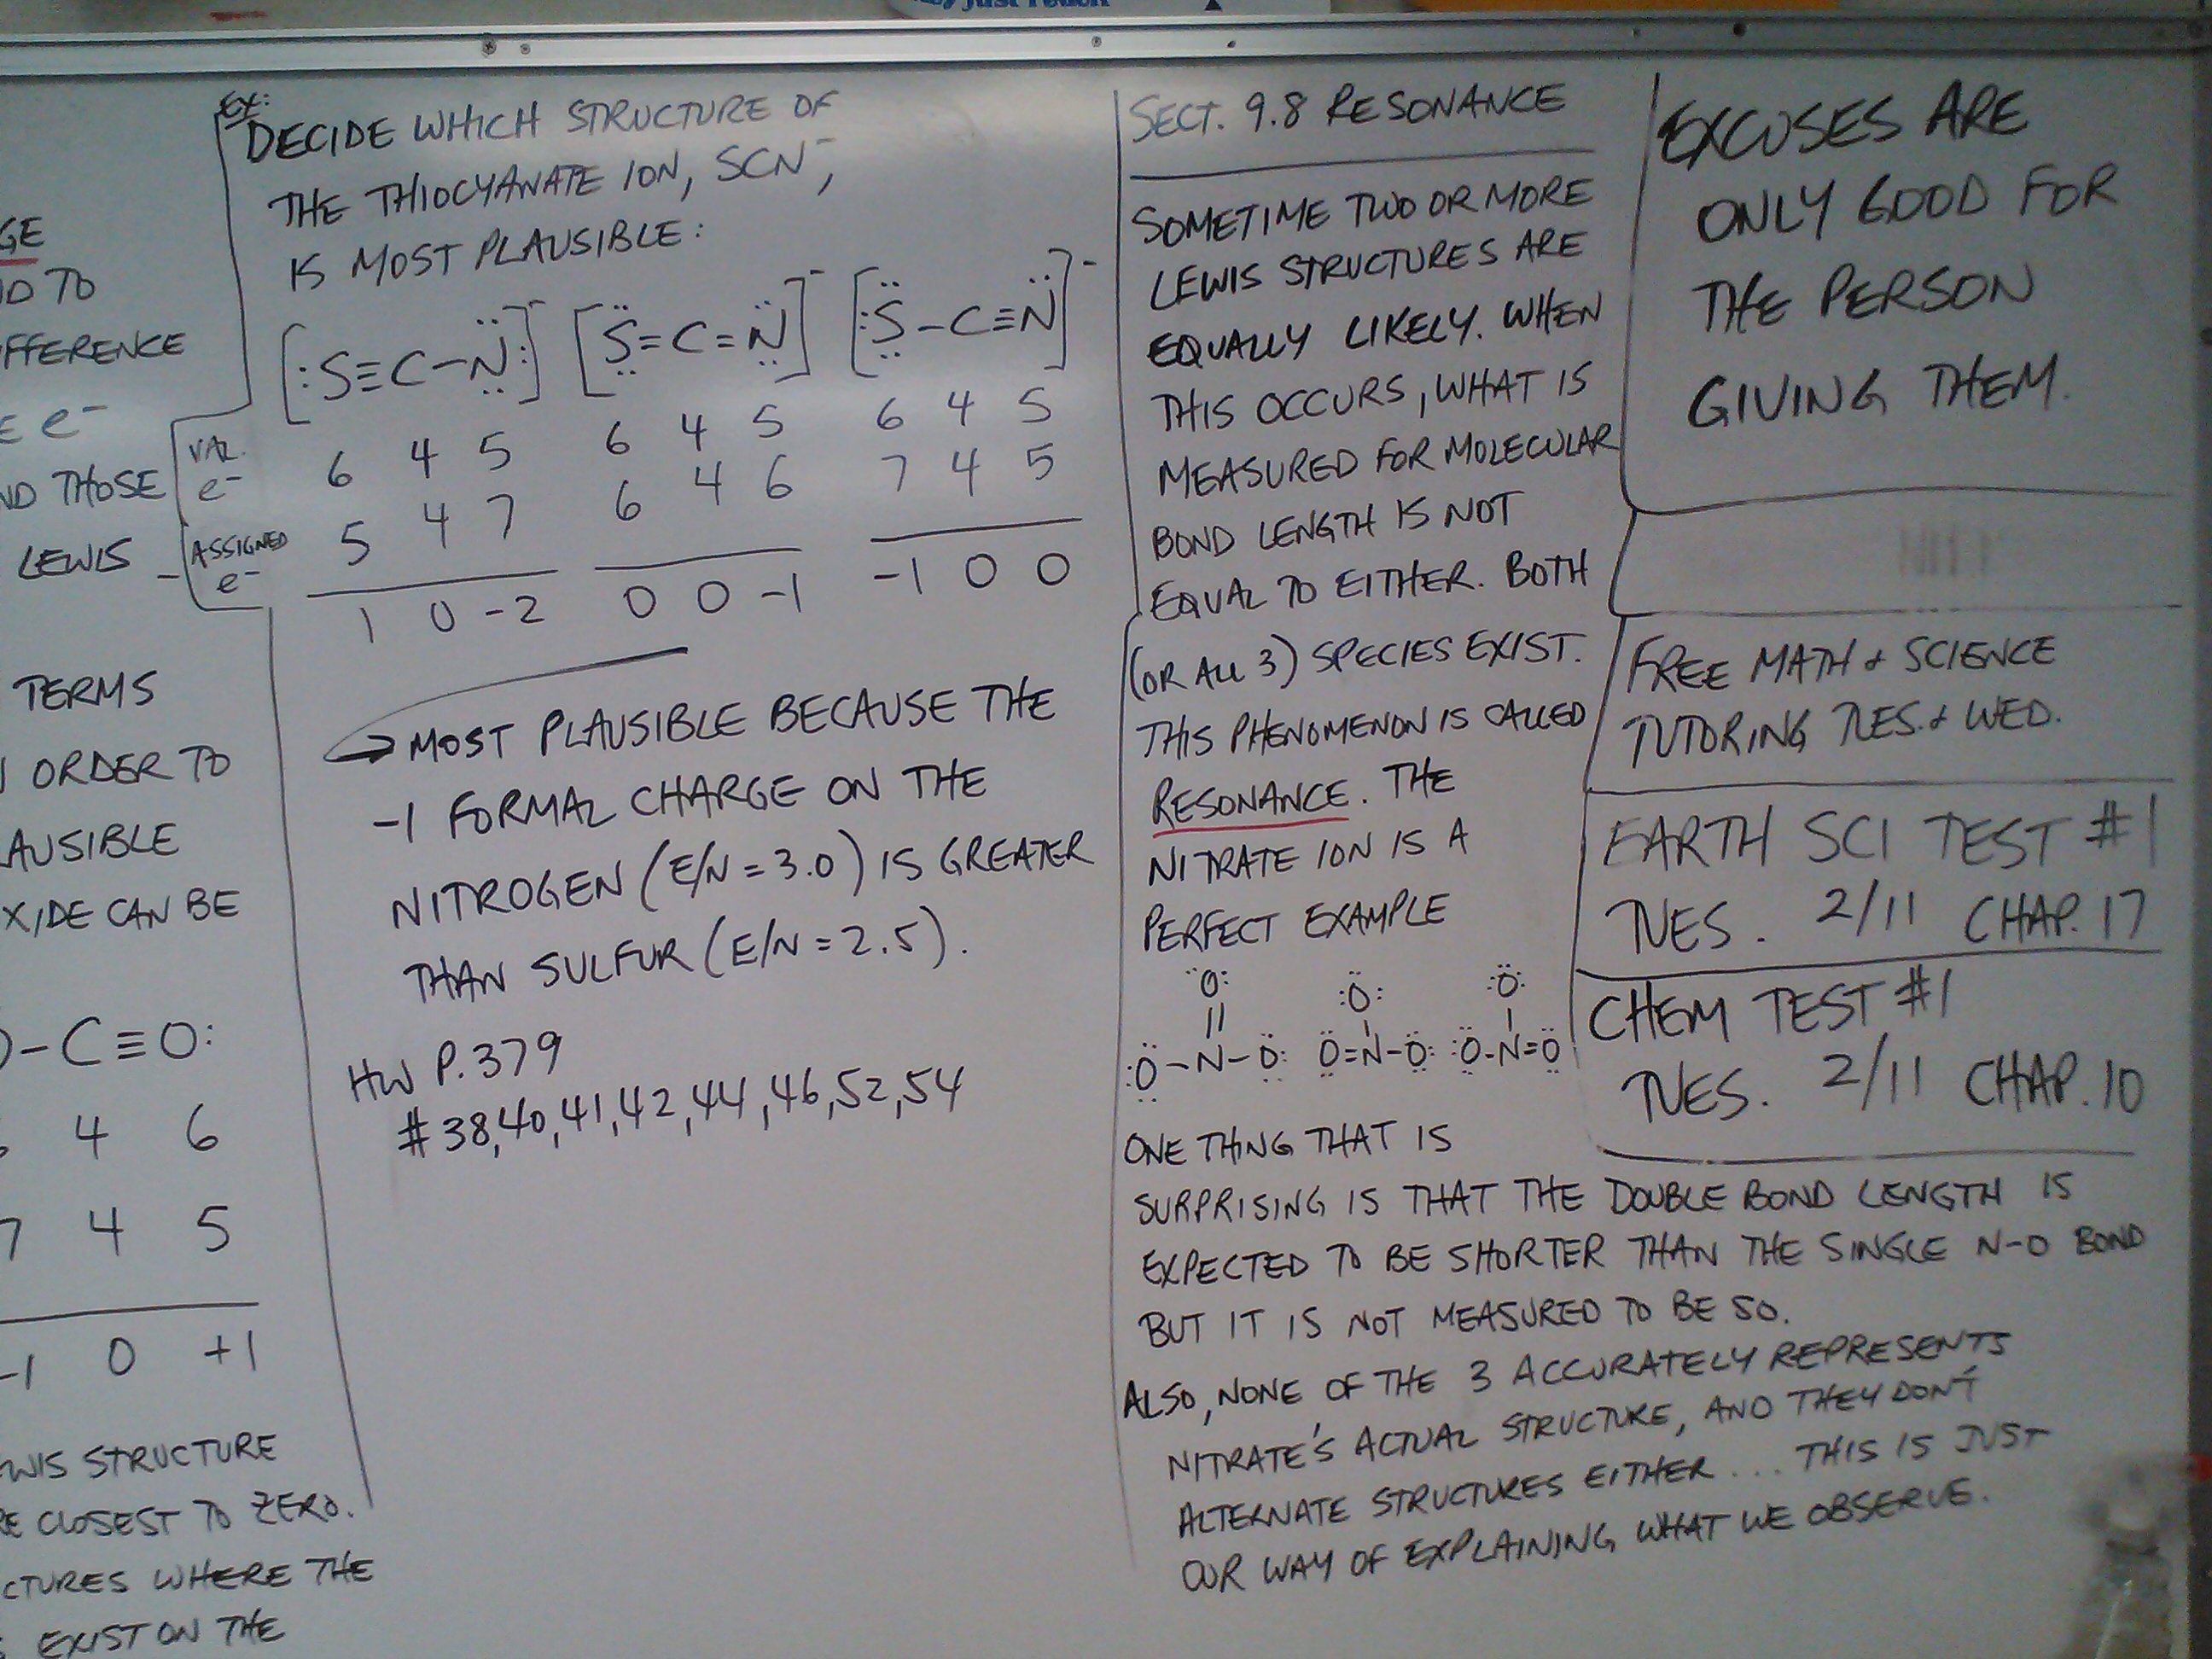 GE
ND TO
FFERENCE
E e⁻
ND THOSE
LEWIS
TERMS
ORDER TO
AUSIBLE
XIDE CAN BE
–C≡O:
4 6
7 4 5
-1 0 +1
WIS STRUCTURE
RE CLOSEST TO ZERO.
CTURES WHERE THE
EXIST ON THE
EX:
DECIDE WHICH STRUCTURE OF
THE THIOCYANATE ION, SCN⁻,
IS MOST PLAUSIBLE:
[:S≡C–N:]⁻ [S=C=N]⁻ [:S–C≡N]⁻
VAL. e⁻ 6 4 5 6 4 5 6 4 5
– ASSIGNED e⁻ 5 4 7 6 4 6 7 4 5
1 0 -2 0 0 -1 -1 0 0
→ MOST PLAUSIBLE BECAUSE THE
-1 FORMAL CHARGE ON THE
NITROGEN (E/N = 3.0) IS GREATER
THAN SULFUR (E/N = 2.5).
HW P. 379
# 38, 40, 41, 42, 44, 46, 52, 54
SECT. 9.8 RESONANCE
SOMETIME TWO OR MORE
LEWIS STRUCTURES ARE
EQUALLY LIKELY. WHEN
THIS OCCURS, WHAT IS
MEASURED FOR MOLECULAR
BOND LENGTH IS NOT
EQUAL TO EITHER. BOTH
(OR ALL 3) SPECIES EXIST.
THIS PHENOMENON IS CALLED
RESONANCE. THE
NITRATE ION IS A
PERFECT EXAMPLE
O: :O: :O:
|| | |
:O–N–O: O=N–O: :O–N=O
ONE THING THAT IS
SURPRISING IS THAT THE DOUBLE BOND LENGTH IS
EXPECTED TO BE SHORTER THAN THE SINGLE N-O BOND
BUT IT IS NOT MEASURED TO BE SO.
ALSO, NONE OF THE 3 ACCURATELY REPRESENTS
NITRATE'S ACTUAL STRUCTURE, AND THEY DON'T
ALTERNATE STRUCTURES EITHER... THIS IS JUST
OUR WAY OF EXPLAINING WHAT WE OBSERVE.
EXCUSES ARE
ONLY GOOD FOR
THE PERSON
GIVING THEM.
FREE MATH & SCIENCE
TUTORING TUES. & WED.
EARTH SCI TEST #1
TUES. 2/11 CHAP. 17
CHEM TEST #1
TUES. 2/11 CHAP. 10